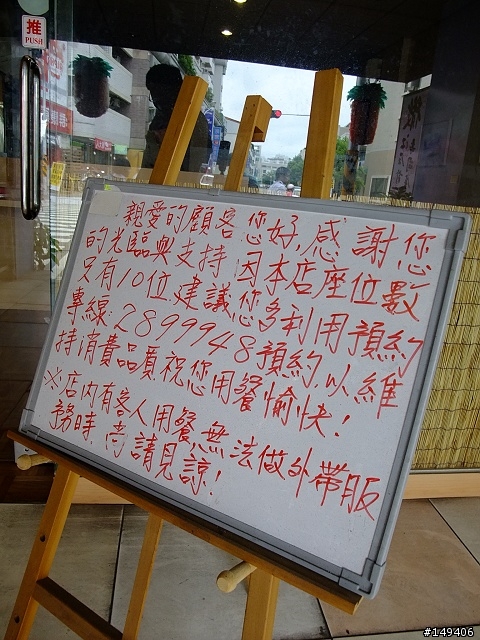 推
PUSH
親愛的顧客您好,感謝您
的光臨與支持,因本店座位數
只有10位,建議您多利用預約
專線:2899948預約,以維
持消費品質,祝您用餐愉快!
※店內有客人用餐,無法做外帶服
務時,尚請見諒!
#149406